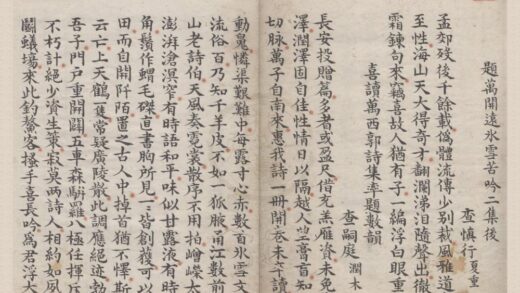 題萬開遠冰雪苦吟二集後
查慎行夏重
孟郊殁後千餘載偽體流傳少别裁風雅道
至性海山天大得奇才翻瀾涕泪隨聲出徹
霜鍊句來竊喜故人猶有子一編浮白眼重
喜讀萬西郭詩集率題數韻
查嗣庭潤木
長安投贈篇多者或盈尺借充羔雁資未免
澤潤澤固自佳性情日以隔越人膏肓知
切脉萬子自南來惠我詩一冊開卷未卒讀
動鬼憐渠艱難中每露寸心赤數百氷雪文
流俗百乃知千羊皮不如一狐腋甬江數前
山老詩伯天風奏霓裳散序不用拍嶒嶸太
澎湃滄溟窄有時語和平味似甘露液有時
角鬚作蝟毛磔直書胸所見一一皆創穫可以
田而自開阡陌置之古人中掉首猶不懌斯
云亡上天鶴隻常疑廣陵散此調應絶迹勃
吾子門户重開闢五車森駢羅八極任揮斥
不朽計絶少濟生策寂莫兩詩人相約如夙
闘蟻場來此釣鰲客搔手喜長吟爲君浮大